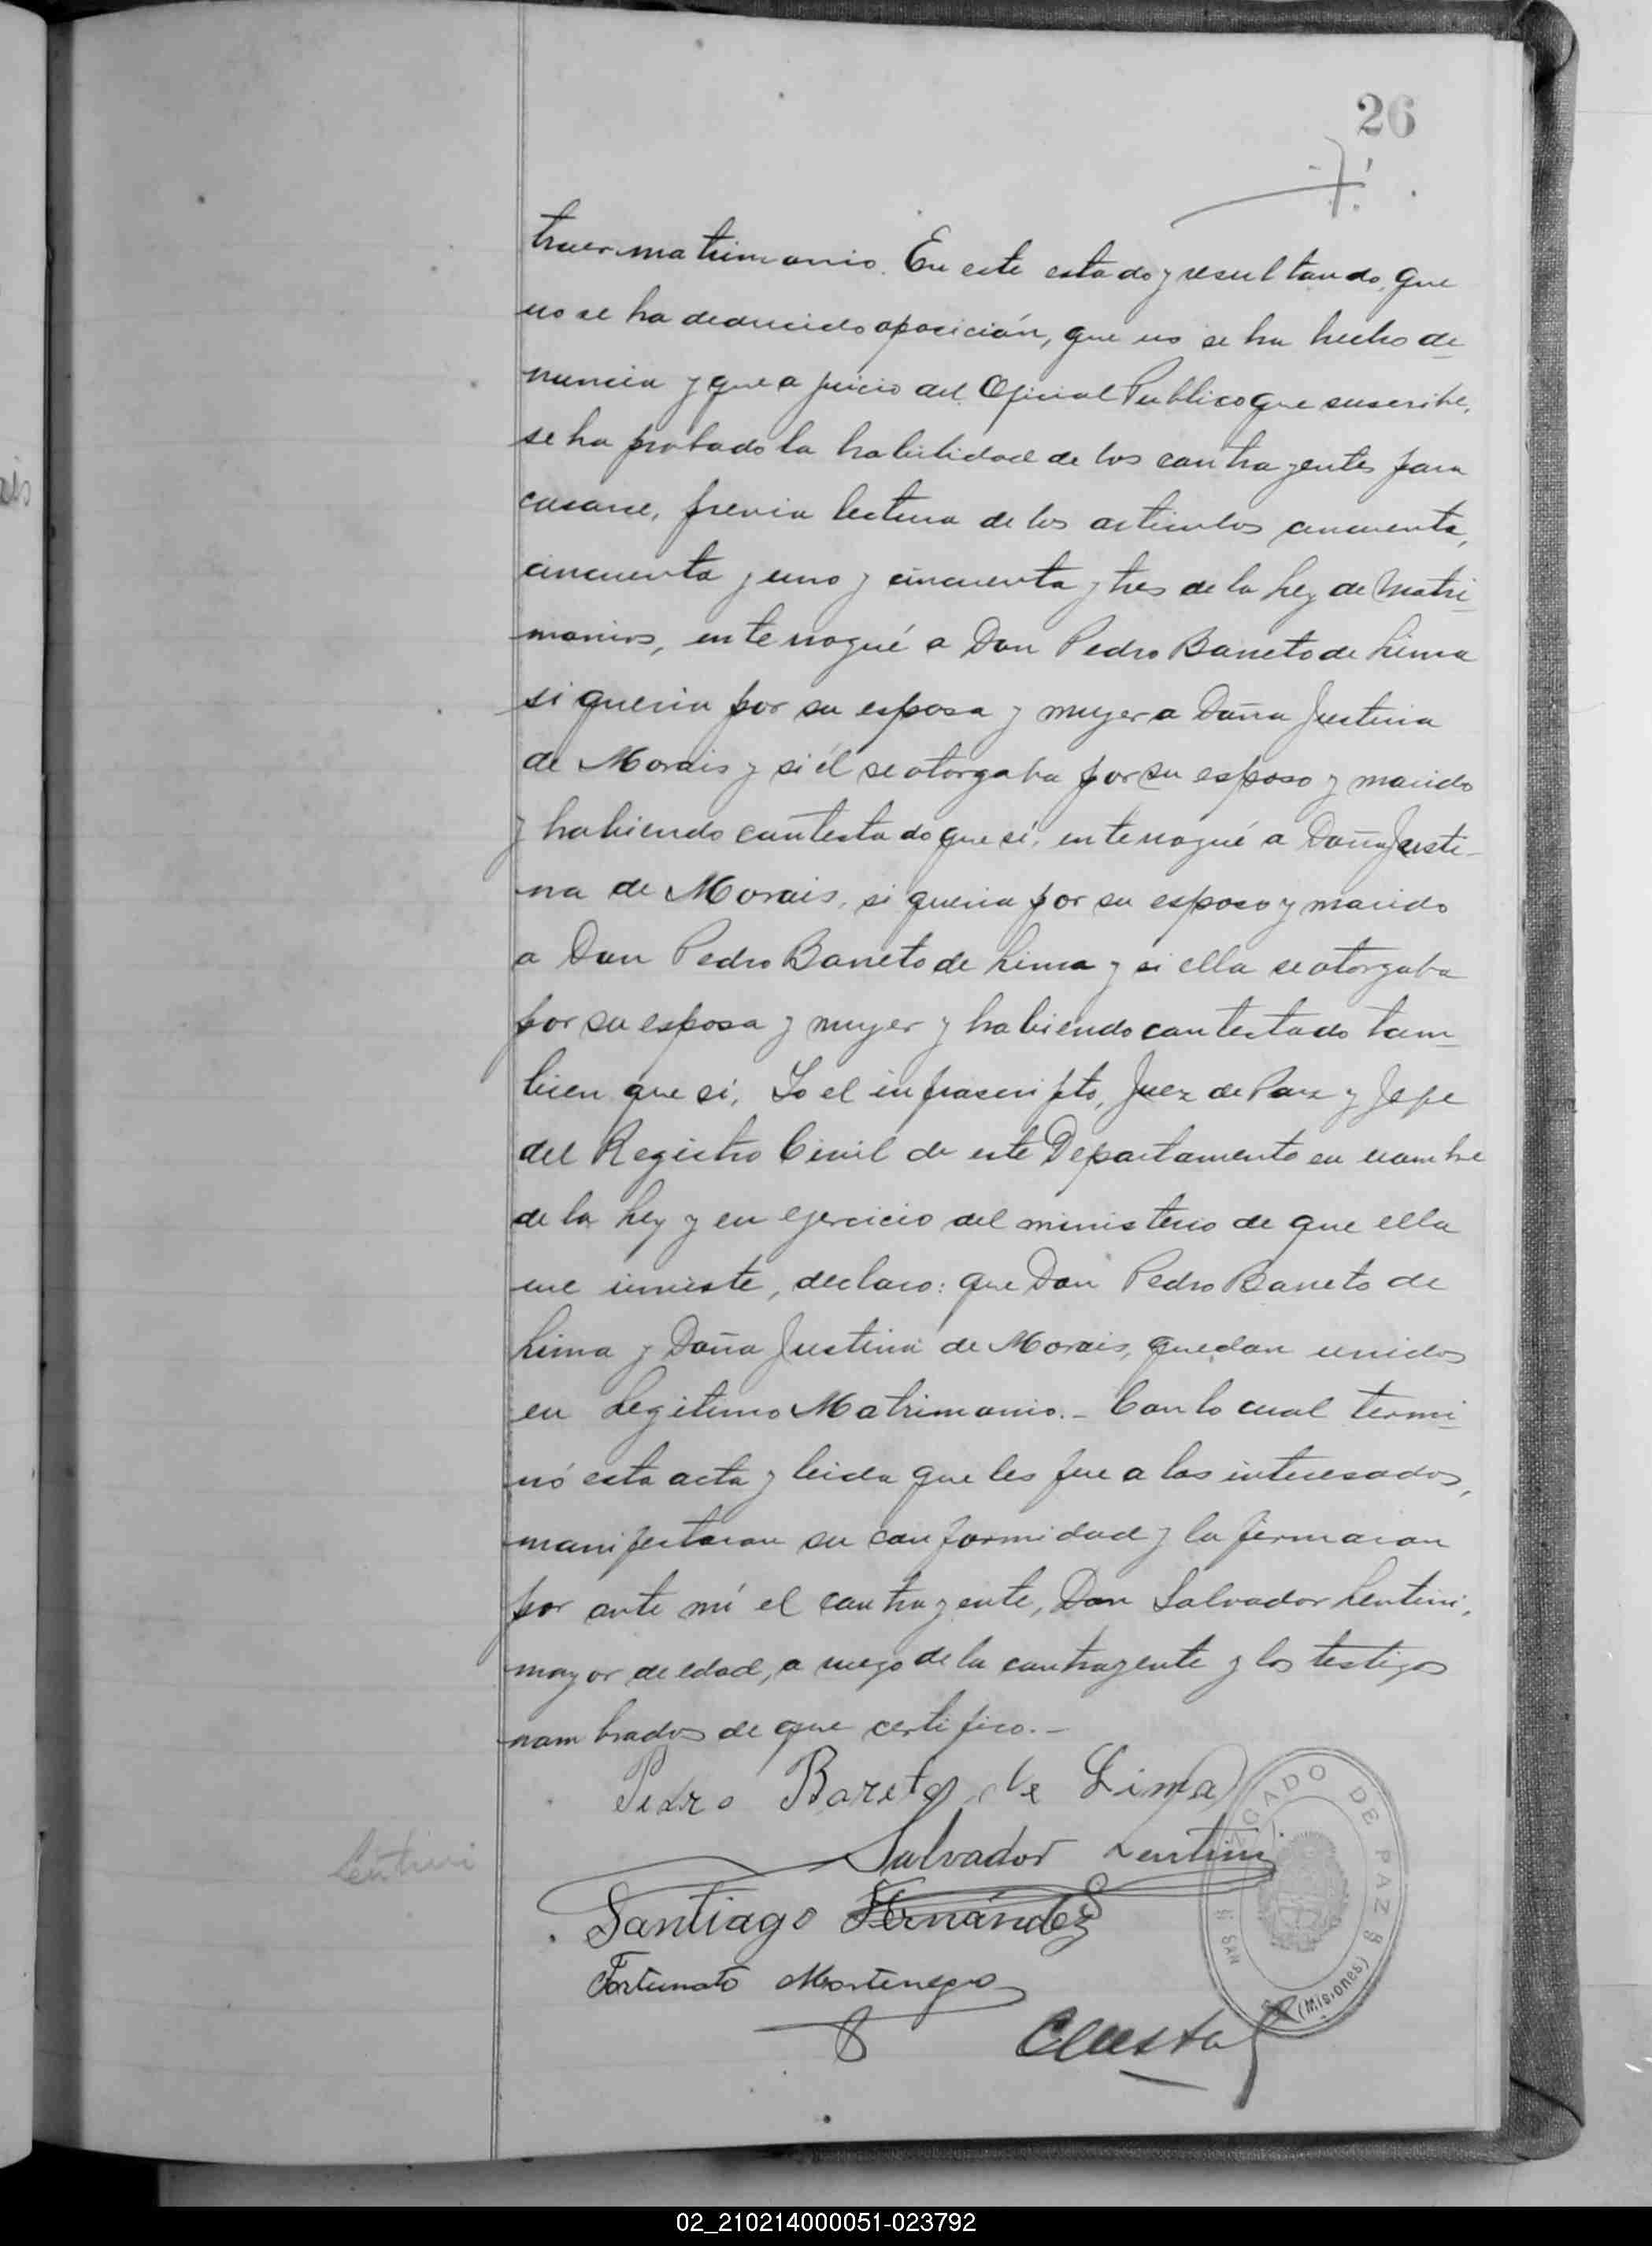 26
traer matrimonio. En este estado y resultando, que
no se ha deducido oposición, que no se ha hecho de
nuncia y que a juicio del Oficial Publico que suscribe,
se ha probado la habilidad de los contrayentes para
casarse, previa lectura de los articulos cincuenta,
cincuenta y uno y cincuenta y tres de la Ley de Matri
monios, interrogué a Don Pedro Barreto de Lima
si queria por su esposa y mujer a Doña Justina
de Morais y si él se otorgaba por su esposo y marido
y habiendo contestado que sí, interrogué a Doña Justi-
na de Morais, si queria por su esposo y marido
a Don Pedro Barreto de Lima y si ella se otorgaba
por su esposa y mujer y habiendo contestado tam
bien que si, Yo el infrascripto, Juez de Paz y Jefe
del Registro Civil de este Departamento en nombre
de la Ley y en ejercicio del ministerio de que ella
me inviste, declaro: que Don Pedro Barreto de
Lima y Doña Justina de Morais, quedan unidos
en Legitimo Matrimonio.- Con lo cual termi
nó esta acta y leida que les fue a los interesados,
manifestaron su conformidad y la firmaron
por ante mí el contrayente, Don Salvador Lentini,
mayor de edad, a ruego de la contrayente y los testigos
nombrados de que certifico.-
Pedro Bareto de Lima
Salvador Lentini
Lentini
Santiago Fernández
Fortunato Montenegro
DE PAZ
SAN
(Misiones)
02_210214000051-023792